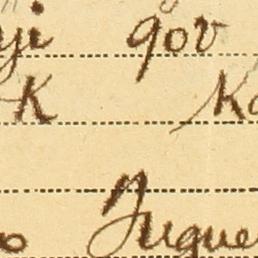 yi gov
K Ko
o Jugue